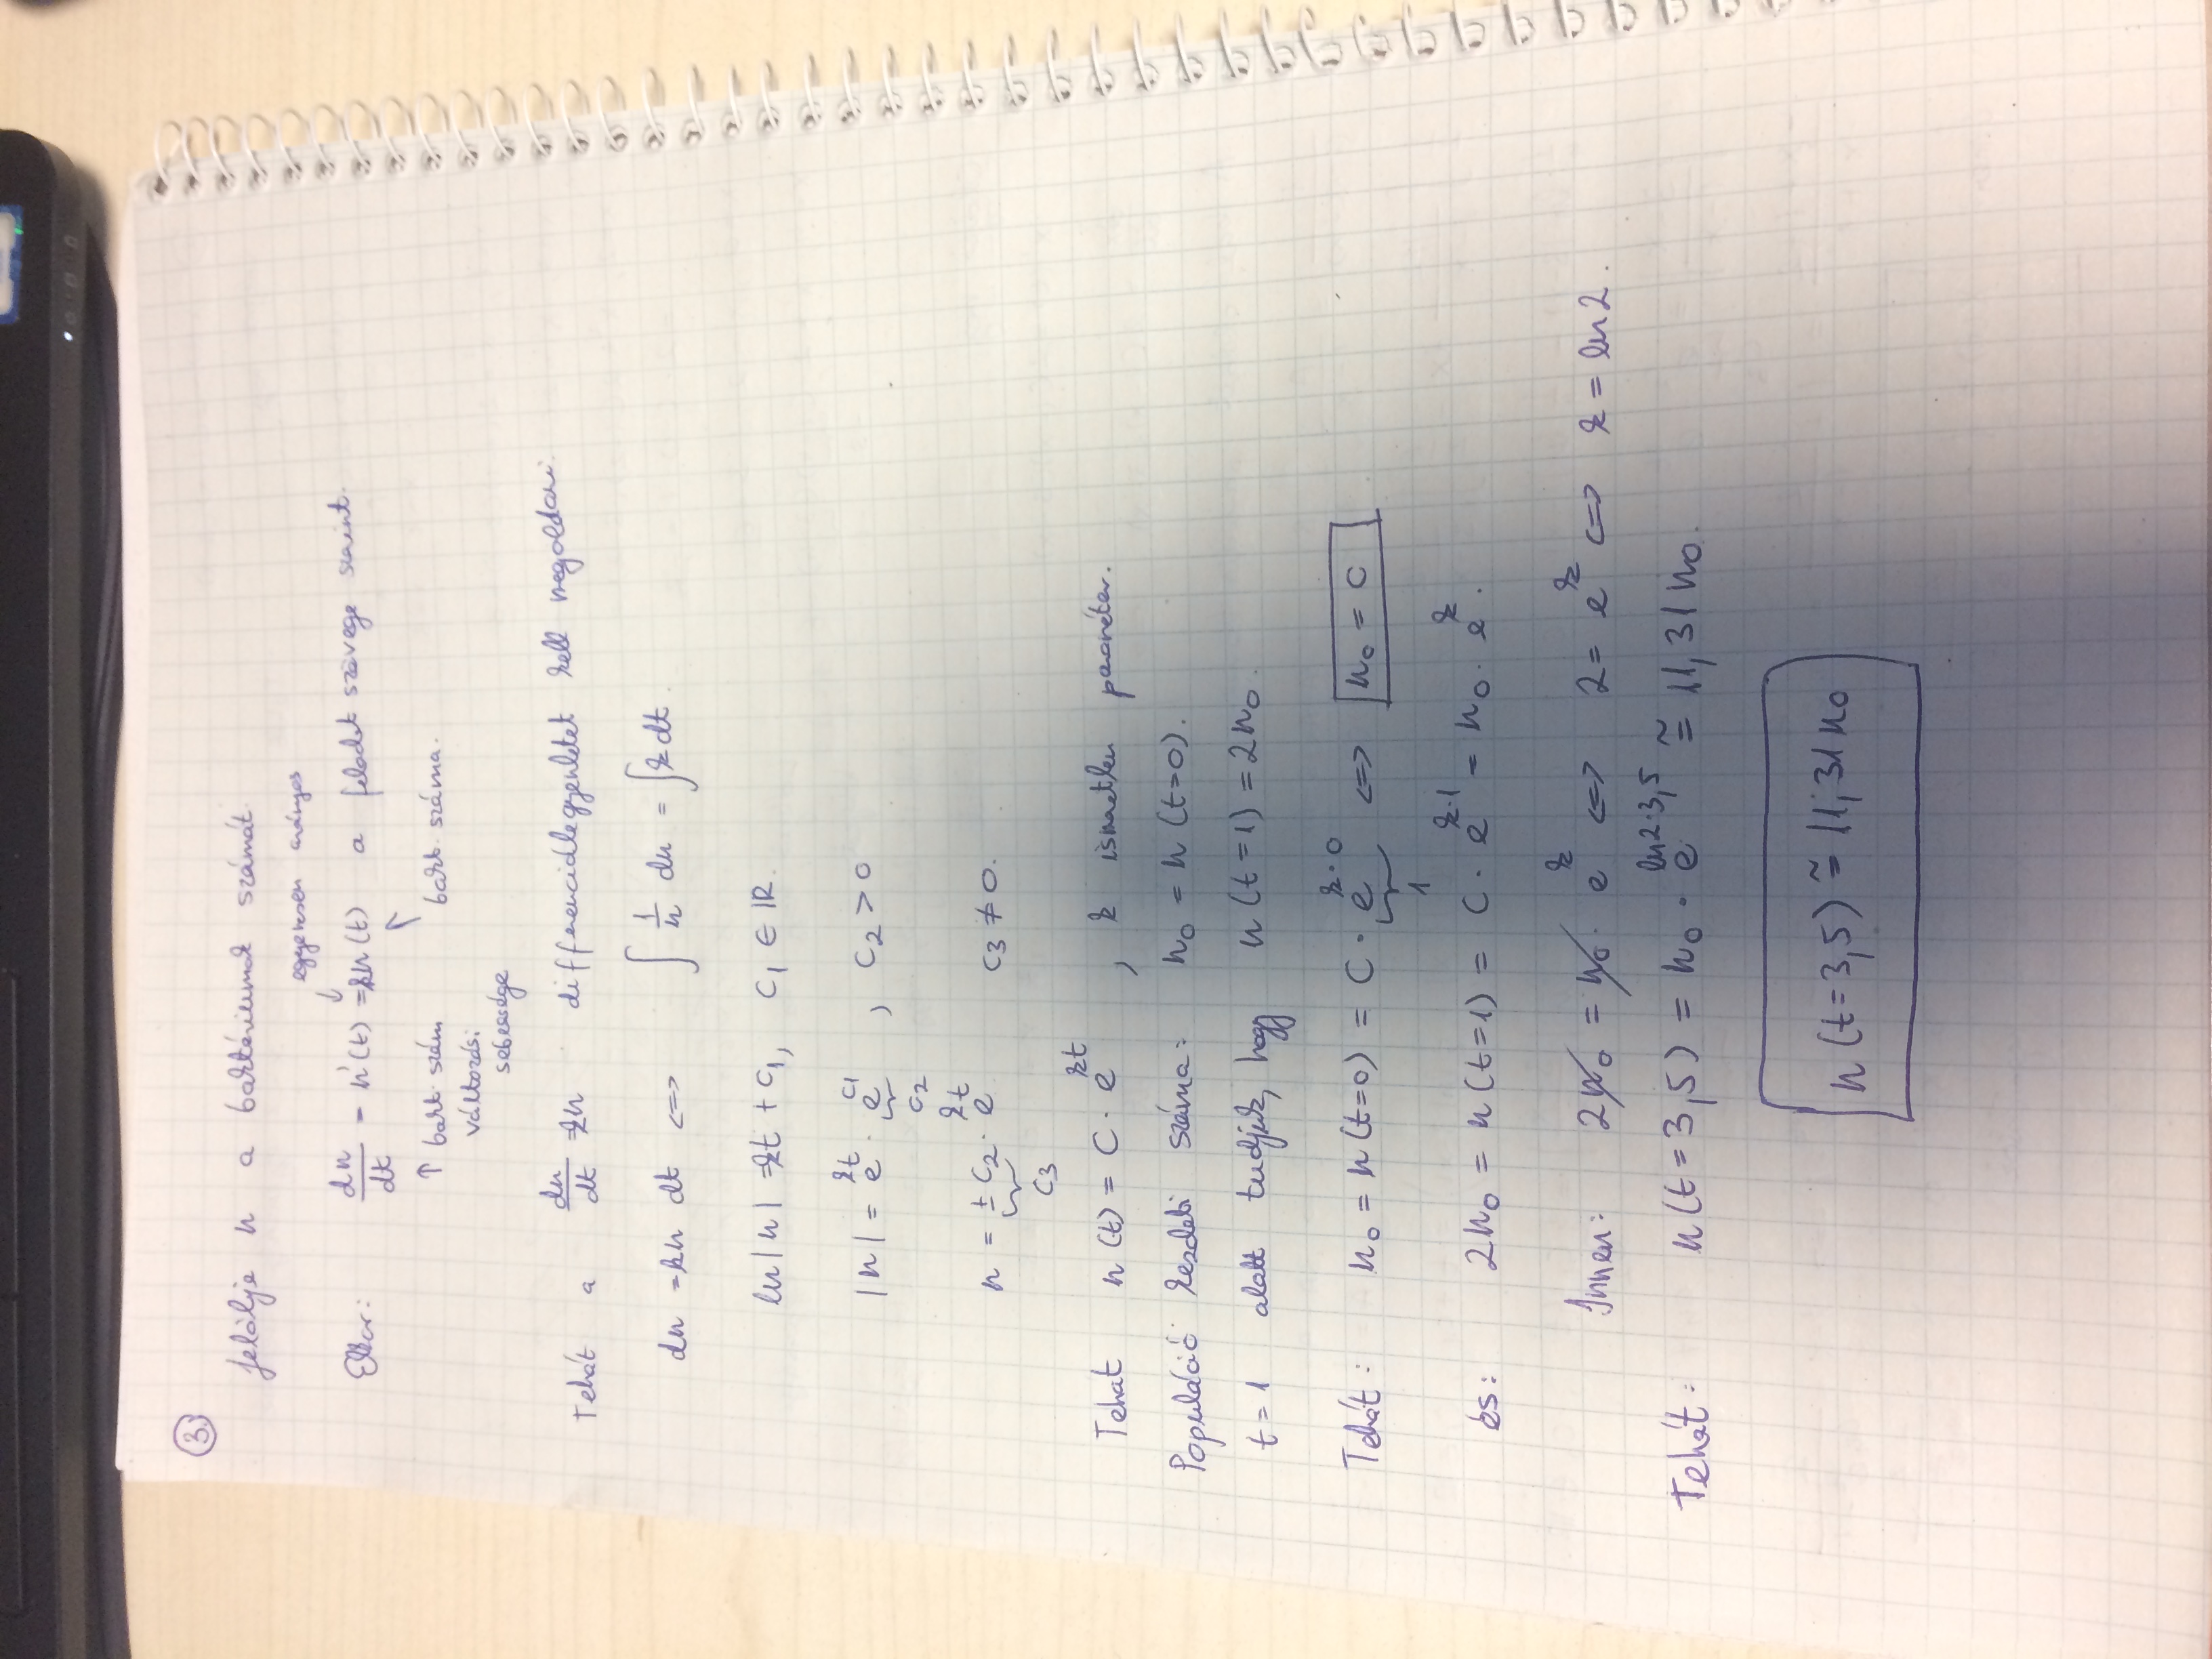 3.
Jelölje n a baktériumok számát.
egyenesen arányos
Ekkor: dn/dt = n'(t) = kn(t) a feladat szövege szerint.
↑ bakt. szám bakt. száma.
változási
sebessége
Tehát a dn/dt = kn differenciálegyenletet kell megoldani.
dn = kn dt <=> ∫ 1/n dn = ∫ k dt.
ln|n| = kt + c₁, c₁ ∈ ℝ.
|n| = e^kt · e^c₁, c₂ > 0
c₂
n = ± c₂ · e^kt c₃ ≠ 0.
c₃
Tehát n(t) = C · e^kt, k ismeretlen paraméter.
Populáció kezdeti száma: n₀ = n(t=0).
t=1 alatt tudjuk, hogy n(t=1) = 2n₀.
Tehát: n₀ = n(t=0) = C · e^k·0 <=> n₀ = C
1
és: 2n₀ = n(t=1) = C · e^k·1 = n₀ · e^k.
Innen: 2n₀ = n₀ · e^k <=> 2 = e^k <=> k = ln2.
Tehát: n(t=3,5) = n₀ · e^ln2·3,5 ≅ 11,31 n₀
n(t=3,5) ≅ 11,31 n₀